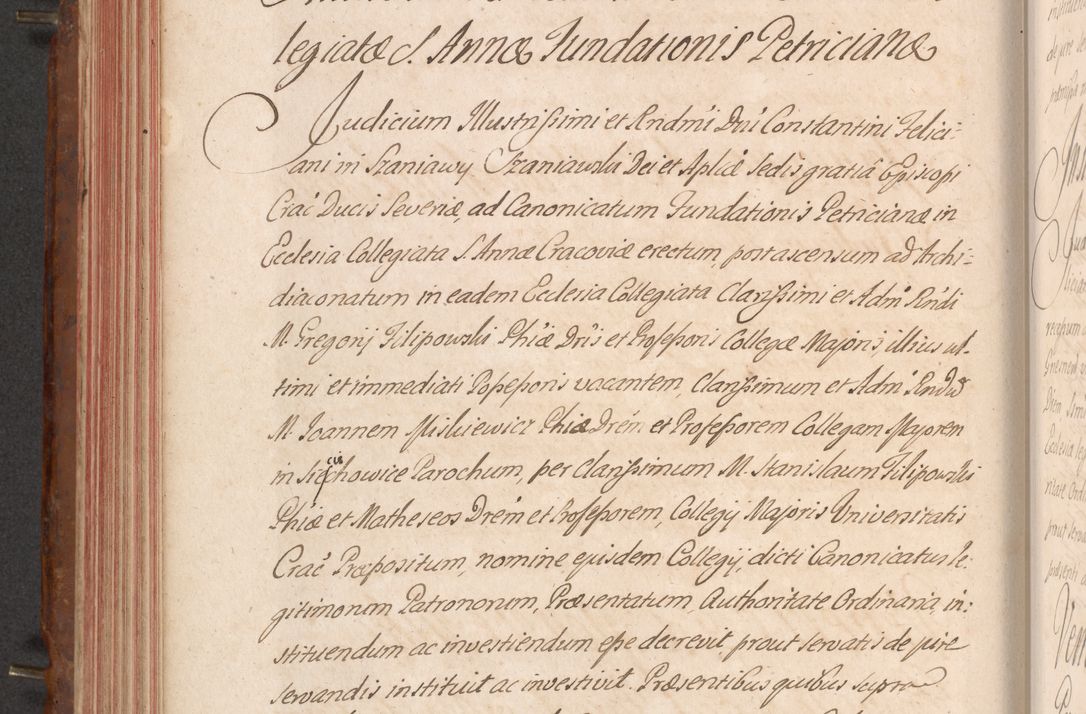 legiatæ S. Annæ Fundationis Petricianæ
Judicium Illustrissimi et Rndmi Dni Constantini Felici-
ani in Szaniawy Szaniawski Dei et Aplicæ Sedis gratiâ Episcopi
Crac Ducis Severiæ, ad Canonicatum Fundationis Petricianæ in
Ecclesia Collegiata S. Annæ Cracoviæ erectum, post ascensum ad Archi-
diaconatum in eadem Ecclesia Collegiata Clarissimi et Adm Rndi
M. Gregorij Filipowski Phiæ Dris et Professoris Collegæ Majoris, illius ul-
timi et immediati Possessoris vacantem, Clarissimum et Adm Rndu
M. Joannem Miskiewicz Phiæ Drem et Professorem Collegam Majorem
in Parochum, per Clarissimum M. Stanislaum Filipowski
Phiæ et Matheseos Drem et Professorem, Collegij Majoris Universitatis
Crac Præpositum, nomine ejusdem Collegij, dicti Canonicatus le-
gitimorum Patronorum, Præsentatum, Authoritate Ordinaria, in-
stituendum ac investiendum esse decrevit, prout servatis de jure
servandis instituit ac investivit. Præsentibus quibus supra